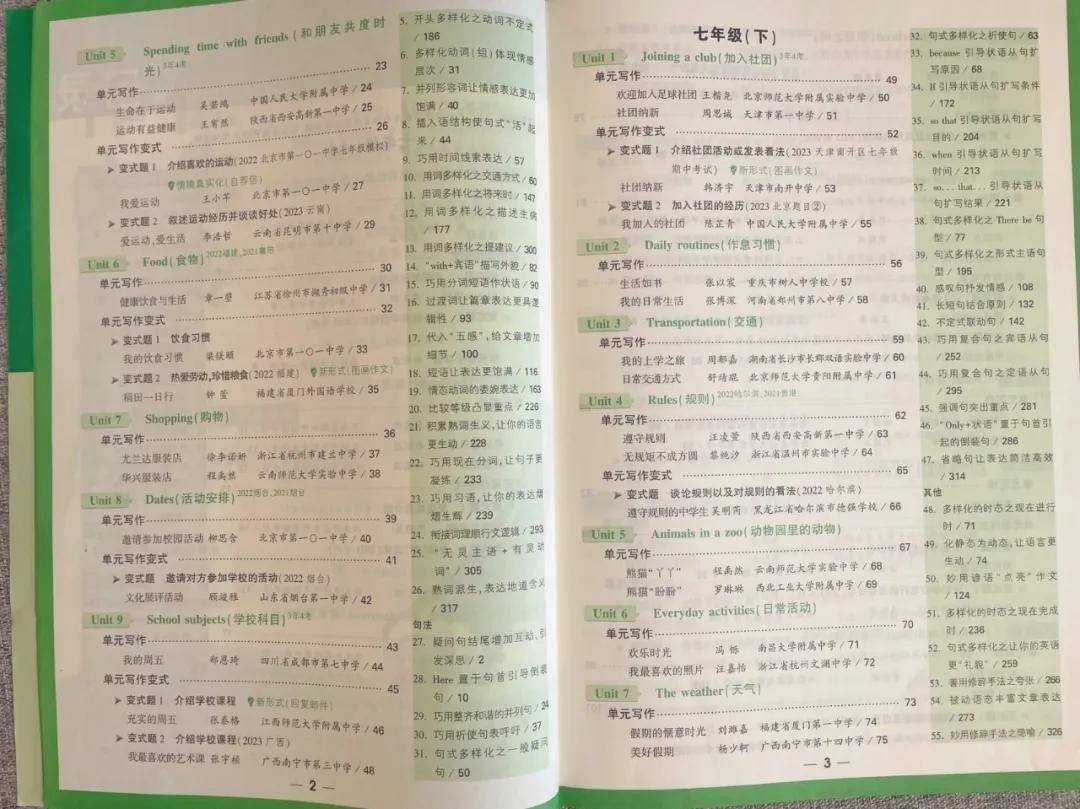 Unit 5 Spending time with friends(和朋友共度时
光)3年4考
单元写作 23
生命在于运动 吴若鸿 中国人民大学附属中学 / 24
运动有益健康 王宥然 陕西省西安高新第一中学 / 25
单元写作变式 26
➤ 变式题 1 介绍喜欢的运动(2022 北京市第一〇一中学七年级模拟)
情境真实化(自荐信)
我爱运动 王小苹 北京市第一〇一中学 / 27
➤ 变式题 2 叙述运动经历并谈谈好处(2023 云南)
爱运动,爱生活 李浩哲 云南省昆明市第十中学 / 29
Unit 6 Food(食物)2022福建, 2021襄阳
单元写作 30
健康饮食与生活 章一塱 江苏省徐州市撷秀初级中学 / 31
单元写作变式 32
➤ 变式题 1 饮食习惯
我的饮食习惯 梁镁颐 北京市第一〇一中学 / 33
➤ 变式题 2 热爱劳动,珍惜粮食(2022 福建) 新形式(图画作文)
稻田一日行 钟萱 福建省厦门外国语学校 / 35
Unit 7 Shopping(购物)
单元写作 36
尤兰达服装店 徐李诺妍 浙江省杭州市建兰中学 / 37
华兴服装店 程禹然 云南师范大学实验中学 / 38
Unit 8 Dates(活动安排)2022烟台, 2021烟台
单元写作 39
邀请参加校园活动 柳思含 北京市第一〇一中学 / 40
单元写作变式 41
➤ 变式题 邀请对方参加学校的活动(2022 烟台)
文化展评活动 顾竣雅 山东省烟台第一中学 / 42
Unit 9 School subjects(学校科目)3年4考
单元写作 43
我的周五 郑恩琦 四川省成都市第七中学 / 44
单元写作变式 45
➤ 变式题 1 介绍学校课程 新形式(回复邮件)
充实的周五 张春格 江西师范大学附属中学 / 46
➤ 变式题 2 介绍学校课程(2023 广西)
我最喜欢的艺术课 张宇桢 广西南宁市第三中学 / 48
5. 开头多样化之动词不定式
/ 186
6. 多样化动词(短)体现情感
层次 / 31
7. 并列形容词让情感表达更加
饱满 / 40
8. 插入语结构使句式“活”起
来 / 44
9. 巧用时间线索表达 / 57
10. 用词多样化之交通方式 / 60
11. 用词多样化之将来时 / 147
12. 用词多样化之描述生病
/ 177
13. 用词多样化之提建议 / 300
14. “with+宾语”描写外貌 / 82
15. 巧用分词短语作状语 / 90
16. 过渡词让篇章表达更具逻
辑性 / 93
17. 代入“五感”,给文章增加
细节 / 100
18. 短语让表达更饱满 / 116
19. 情态动词的委婉表达 / 163
20. 比较等级凸显重点 / 226
21. 积累熟词生义,让你的语言
更生动 / 228
22. 巧用现在分词,让句子更
凝练 / 233
23. 巧用习语,让你的表达熠
熠生辉 / 239
24. 衔接词理顺行文逻辑 / 293
25. “无灵主语+有灵动
词” / 305
26. 熟词派生,表达地道含义
/ 317
句法
27. 疑问句结尾增加互动,引
发深思 / 2
28. Here 置于句首引导倒装
句 / 10
29. 巧用整齐和谐的并列句 / 24
30. 巧用祈使句表呼吁 / 37
31. 句式多样化之一般疑问
句 / 50
— 2 —
七年级(下)
Unit 1 Joining a club(加入社团)3年4考
单元写作 49
欢迎加入足球社团 王楷尧 北京师范大学附属实验中学 / 50
社团纳新 周思诚 天津市第一中学 / 51
单元写作变式 52
➤ 变式题 1 介绍社团活动或发表看法(2023 天津南开区七年级
期中考试) 新形式(图画作文)
社团纳新 韩济宇 天津市南开中学 / 53
➤ 变式题 2 加入社团的经历(2023 北京题目②)
我加入的社团 陈芷青 中国人民大学附属中学 / 55
Unit 2 Daily routines(作息习惯)
单元写作 56
生活如书 张以宸 重庆市树人中学校 / 57
我的日常生活 张博深 河南省郑州市第八中学 / 58
Unit 3 Transportation(交通)
单元写作 59
我的上学之旅 周郁嘉 湖南省长沙市长郡双语实验中学 / 60
日常交通方式 舒琦琨 北京师范大学贵阳附属中学 / 61
Unit 4 Rules(规则)2022哈尔滨, 2021贵港
单元写作 62
遵守规则 汪凌萱 陕西省西安高新第一中学 / 63
无规矩不成方圆 黎纯沙 浙江省温州市实验中学 / 64
单元写作变式 65
➤ 变式题 谈论规则以及对规则的看法(2022 哈尔滨)
遵守规则的中学生 吴明芮 黑龙江省哈尔滨市德强学校 / 66
Unit 5 Animals in a zoo(动物园里的动物)
单元写作 67
熊猫“丫丫” 程禹然 云南师范大学实验中学 / 68
熊猫“盼盼” 罗琳琳 西北工业大学附属中学 / 69
Unit 6 Everyday activities(日常活动)
单元写作 70
欢乐时光 冯铄 南昌大学附属中学 / 71
我最喜欢的照片 汪嘉怡 浙江省杭州文澜中学 / 72
Unit 7 The weather(天气)
单元写作 73
假期的惬意时光 刘滩嘉 福建省厦门第一中学 / 74
美好假期 杨少柯 广西南宁市第十四中学 / 75
32. 句式多样化之祈使句 / 63
33. because 引导状语从句扩
写原因 / 68
34. If 引导状语从句扩写条件
/ 172
35. so that 引导状语从句扩写
目的 / 204
36. when 引导状语从句扩写
时间 / 213
37. so... that... 引导状语从
句扩写结果 / 221
38. 句式多样化之 There be 句
型 / 77
39. 句式多样化之形式主语句
型 / 195
40. 感叹句抒发情感 / 108
41. 长短句结合原则 / 132
42. 不定式联动句 / 142
43. 巧用复合句之宾语从句
/ 252
44. 巧用复合句之定语从句
/ 295
45. 强调句突出重点 / 281
46. “Only+状语”置于句首引
起的倒装句 / 286
47. 省略句让表达简洁高效
/ 314
其他
48. 多样化的时态之现在进行
时 / 71
49. 化静态为动态,让语言更
生动 / 74
50. 妙用谚语“点亮”作文
/ 124
51. 多样化的时态之现在完成
时 / 236
52. 句式多样化之让你的英语
更“礼貌” / 259
53. 善用修辞手法之夸张 / 266
54. 被动语态丰富文章表达
/ 273
55. 妙用修辞手法之隐喻 / 326
— 3 —